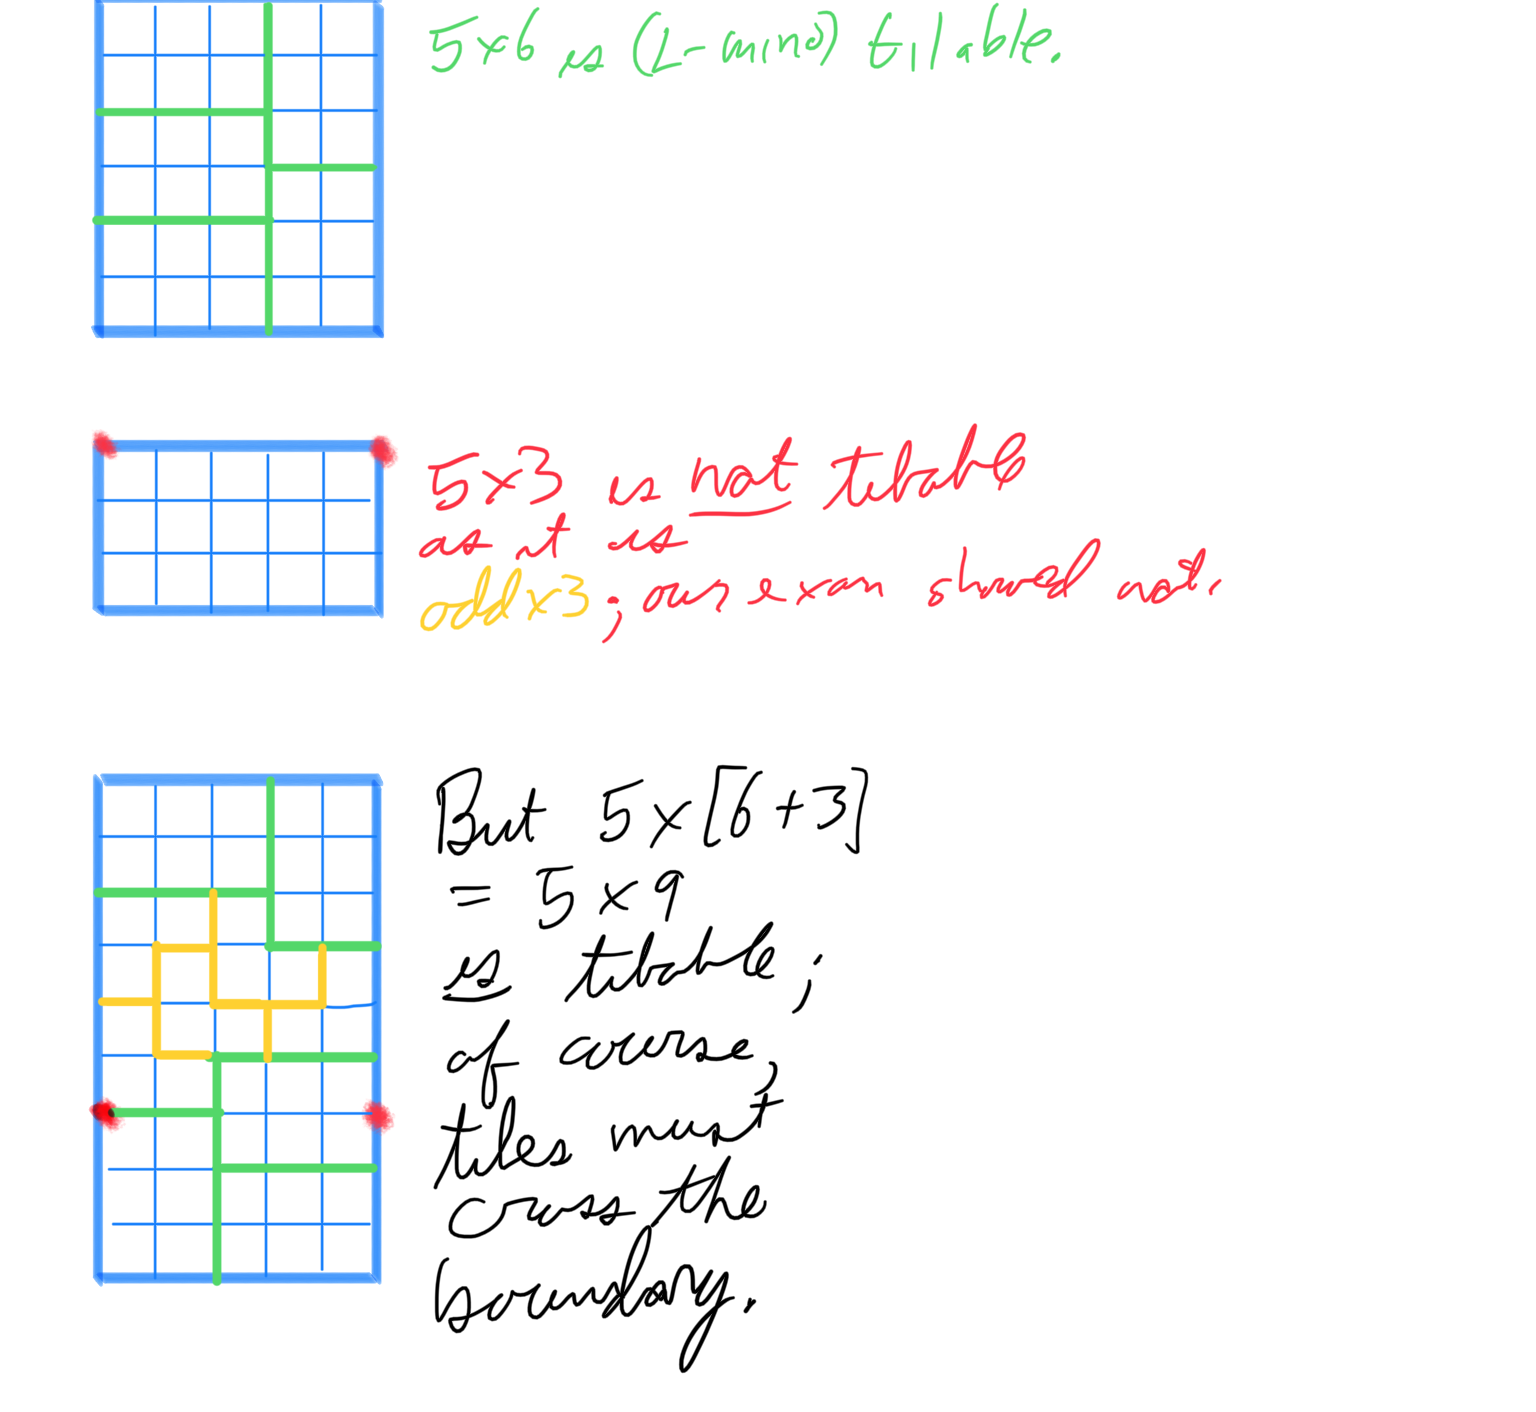 5x6 is (L-mino) tilable.
5x3 is not tilable
as it is
odd x3; our exam showed not.
But 5x[6+3]
= 5x9
is tilable;
of course,
tiles must
cross the
boundary.